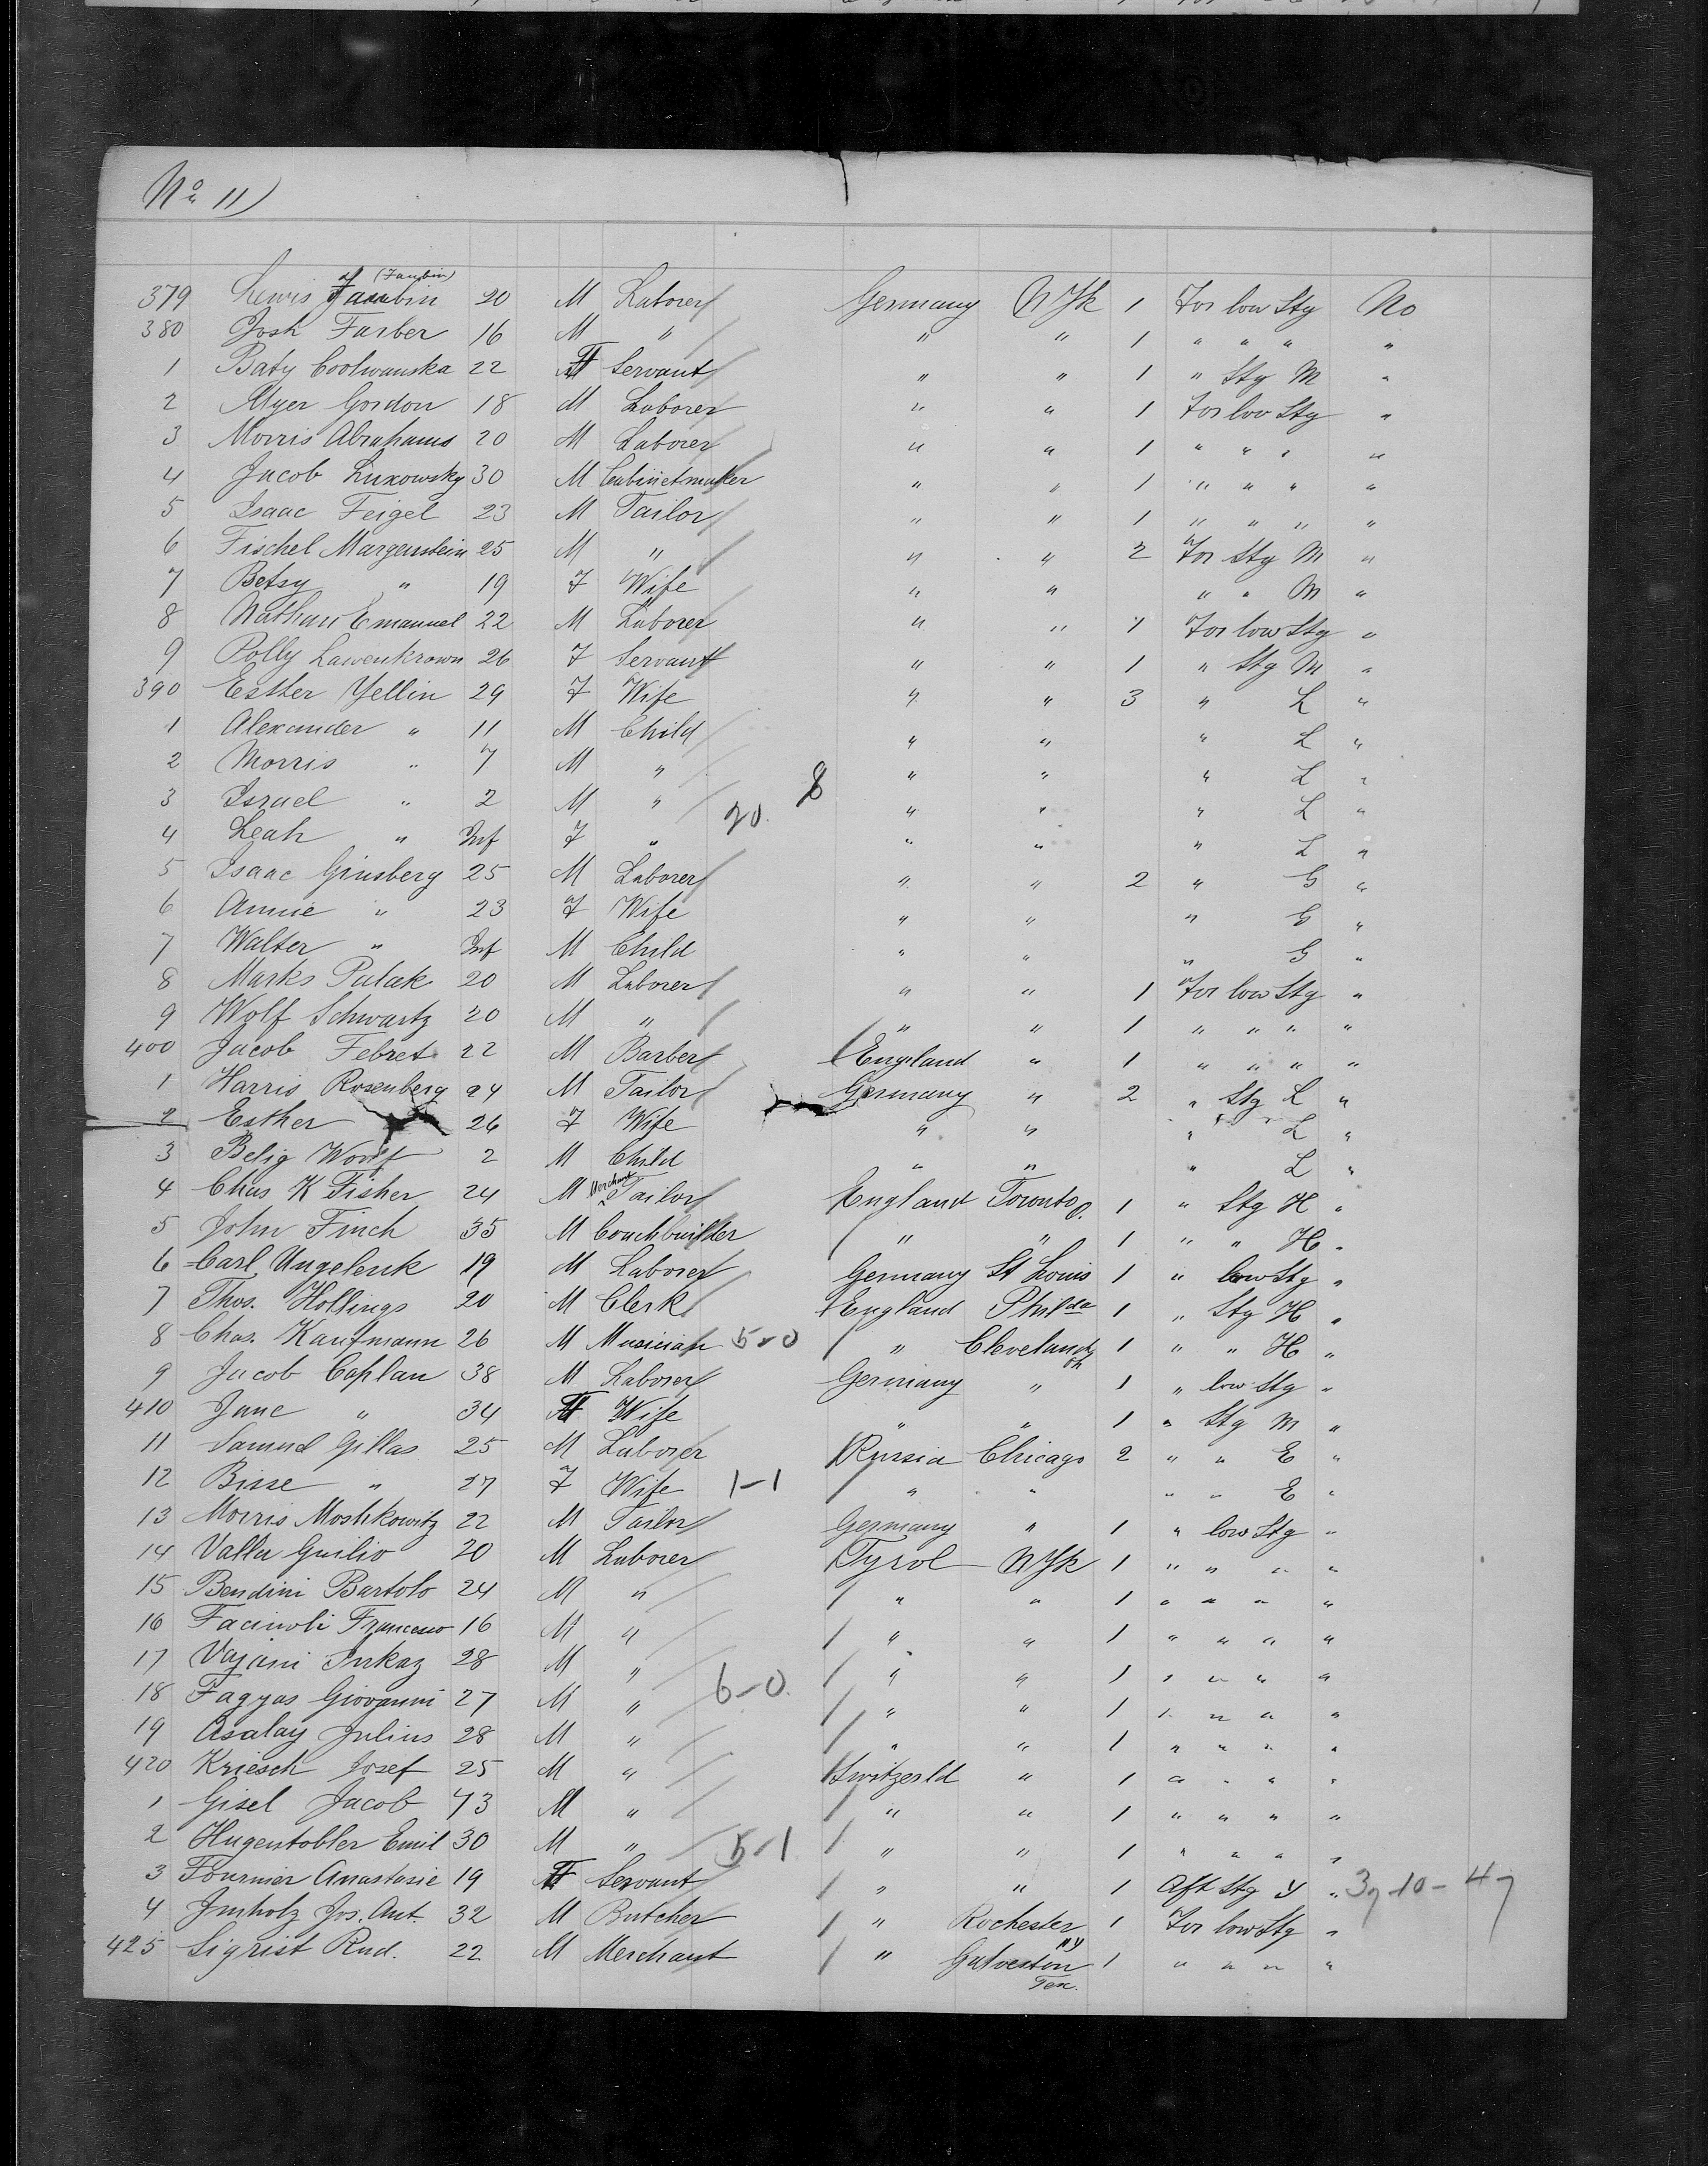 No 11)
(Faubin)
379 Lewis Faubin 20 M Laborer Germany N Yk 1 For low Stg No
380 Josh Farber 16 M " " " 1 " " " "
1 Baty Coolwanska 22 F Servant " " 1 " Stg M "
2 Myer Gordon 18 M Laborer " " 1 For low Stg "
3 Morris Abrahams 20 M Laborer " " 1 " " " "
4 Jacob Luxowsky 30 M Cabinetmaker " " 1 " " " "
5 Isaac Feigel 23 M Tailor " " 1 " " " "
6 Fischel Margenstein 25 M " " " 2 For Stg M "
7 Betsy " 19 F Wife " " " " M "
8 Nathan Emanuel 22 M Laborer " " 1 For low Stg "
9 Polly Lawenkrown 26 F Servant " " 1 " Stg M "
390 Esther Yellin 29 F Wife " " 3 " L "
1 Alexander " 11 M Child " " " L "
2 Morris " 7 M " " " " L "
3 Israel " 2 M " 20 8 " " " L "
4 Leah " Inf F " " " " L "
5 Isaac Ginsberg 25 M Laborer " " 2 " G "
6 Annie " 23 F Wife " " " G "
7 Walter " Inf M Child " " " G "
8 Marks Palak 20 M Laborer " " 1 For low Stg "
9 Wolf Schwartz 20 M " " " 1 " " " "
400 Jacob Febret 22 M Barber England " 1 " " " "
1 Harris Rosenberg 24 M Tailor Germany " 2 " Stg L "
2 Esther 26 F Wife " " " " L "
3 Belig Wolf 2 M Child " " " L "
4 Chas K Fisher 24 M Merchant Tailor England Toronto O. 1 " Stg H "
5 John Finch 35 M Coachbuilder " " 1 " " H "
6 Carl Ungelenk 19 M Laborer Germany St Louis 1 " low Stg "
7 Thos. Hollings 20 M Clerk England Philda 1 " Stg H "
8 Chas. Kaufmann 26 M Musician 5-0 " Cleveland Oh 1 " " H "
9 Jacob Caplan 38 M Laborer Germany " 1 " low Stg "
410 Jane " 34 F Wife " " 1 " Stg M "
11 Samuel Gillas 25 M Laborer Russia Chicago 2 " " E "
12 Bisse " 27 F Wife 1-1 " " " " E "
13 Morris Moshkowitz 22 M Tailor Germany " 1 " low Stg "
14 Valla Guilio 20 M Laborer Tyrol N Yk 1 " " " "
15 Bendini Bartolo 24 M " " " 1 " " " "
16 Facinoli Francesco 16 M " " " 1 " " " "
17 Vajani Inkaz 28 M " " " 1 " " " "
18 Fagyas Giovanni 27 M " 6-0. " " 1 " " " "
19 Asalay Julius 28 M " " " 1 " " " "
420 Kriesch Josef 25 M " Switzerld " 1 " " " "
1 Gisel Jacob 43 M " " " 1 " " " "
2 Hugentobler Emil 30 M " 5-1 " " 1 " " " "
3 Fournier Anastasie 19 F Servant " " 1 Aft Stg Y " 37-10-47
4 Imholz Jos. Ant. 32 M Butcher " Rochester NY 1 For low Stg "
425 Sigrist Rud. 22 M Merchant " Galveston Tex. 1 " " " "